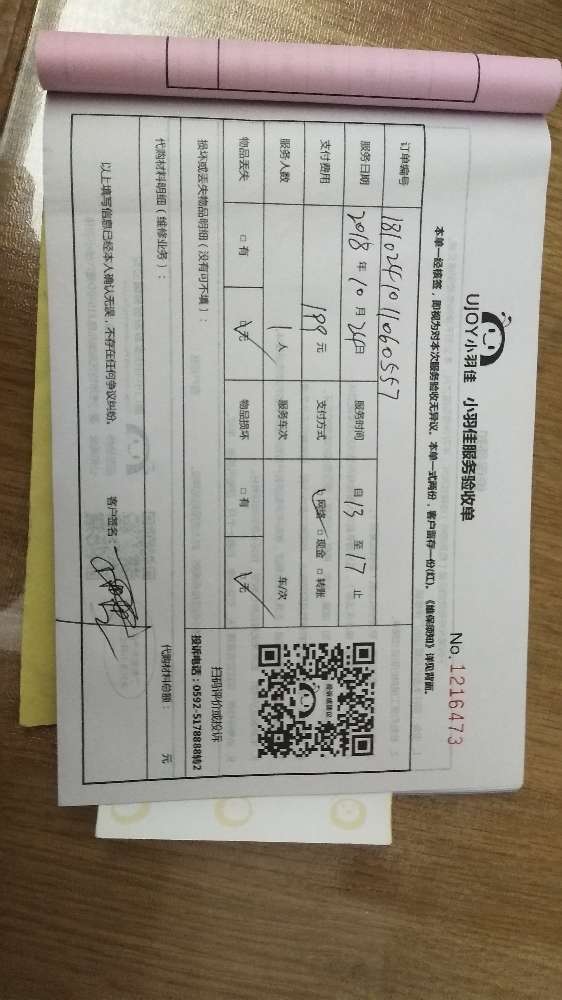 UJOY小羽佳 小羽佳服务验收单
No.1216473
本单一经核签，即视为对本次服务验收无异议。本单一式两份，客户留存一份(红)。《维保须知》详见背面。
订单编号 1810241011060557
服务日期 2018年10月24日 服务时间 自13至17止
支付费用 199元 支付方式 网络 □现金 □转账
服务人数 1人 服务车次 车/次
物品丢失 □有 □无 物品损坏 □有 □无
投诉或建议
扫码评价或投诉
投诉电话：0592-5178888转2
损坏或丢失物品明细（没有可不填）：
代购材料明细（维修业务）： 代购材料总额： 元
以上填写信息已经本人确认无误，不存在任何争议纠纷。 客户签名：